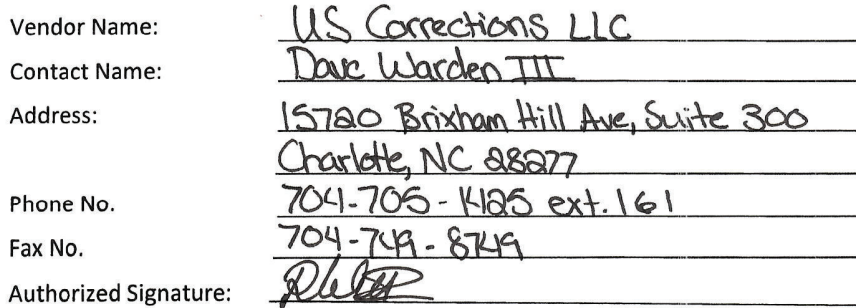 Vendor Name: US Corrections LLC
Contact Name: Dave Warden III
Address: 15720 Brixham Hill Ave, Suite 300
Charlotte, NC 28277
Phone No. 704-705-1425 ext. 161
Fax No. 704-749-8749
Authorized Signature: